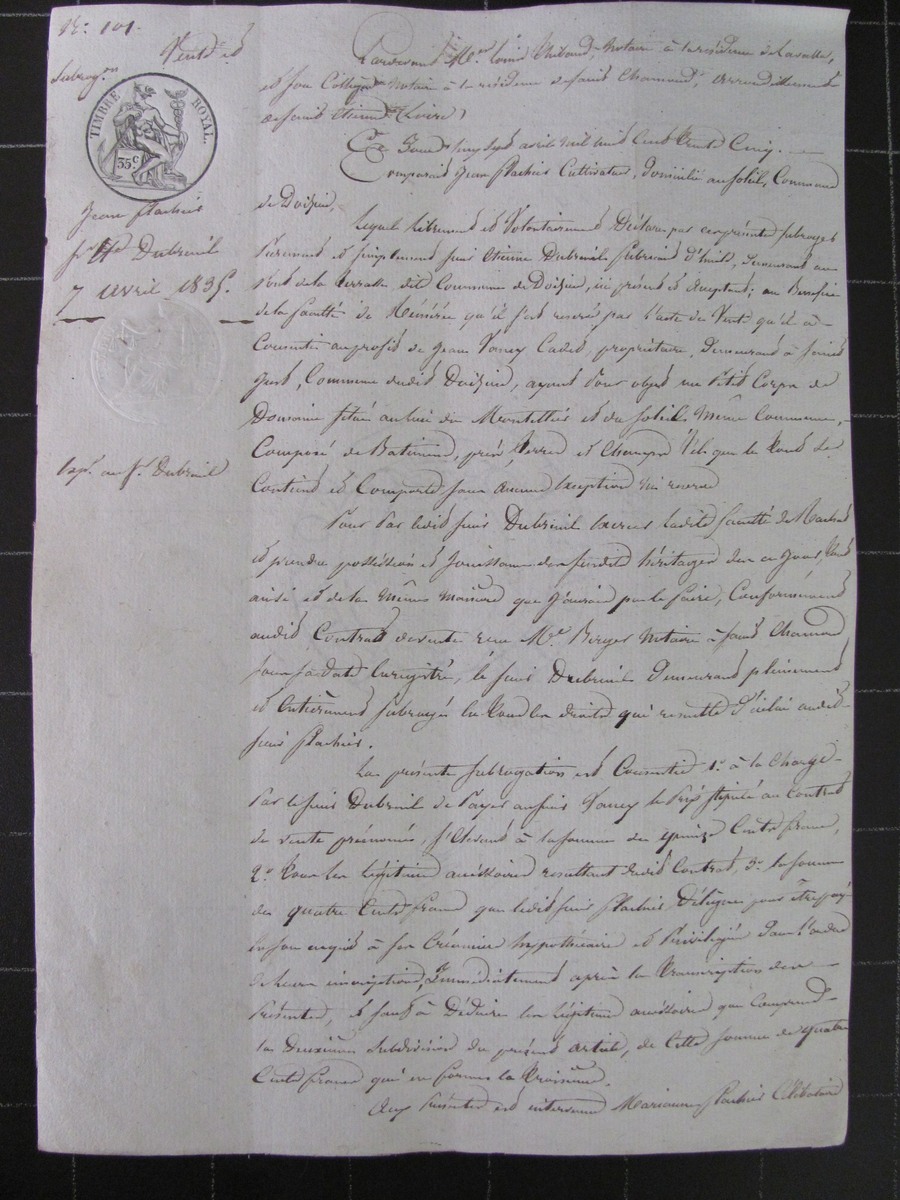 No. 101.
Vente et
subrogon
TIMBRE ROYAL
35c
Jean Flachier
Dubreuil
7 avril 1835.
Exp. au Sr. Dubreuil
Pardevant Me. Louis Thibaud, Notaire à la résidence de Lavalla,
et son Collègue Notaire à la résidence de Saint Chamond, arrondissement
de Saint Etienne (Loire)
Ce Jourd'huy Sept avril mil huit Cent trente Cinq.
Comparait Jean Flachier Cultivateur, domicilié au Soleil, Commune
de Doizieu,
Lequel librement et Volontairement Déclare par ces présentes subroger
Purement et simplement Sieur Etienne Dubreuil fabricant d'huile, demeurant au
Pont de la Terrasse, dite Commune de Doizieu, ici présent et acceptant; au Bénéfice
de la faculté de Réméré qu'il s'est réservé par l'acte de Vente qu'il a
Consentie au profit de Jean Vancy Cadet, propriétaire, Demeurant à Saint
Just, Commune dudit Doizieu, ayant pour objet un Petit Corps de
Domaine situé au lieu du Montellier et du Soleil même Commune,
Composé de Batiments, prés, Terres et Champs Tels que le tout se
Contient et Comporte sans aucune Exception ni reserve
Pour Par ledit Sieur Dubreuil Exercer ladite faculté de Rachat
et prendre possession et Jouissance desdits héritages dès ce Jour,
ainsi et de la même manière que J'aurais pu le faire, Conformément
audit Contrat de vente reçu Me. Berger Notaire à Saint Chamond
sous sa date Enregistré, le Sieur Dubreuil Demeurant pleinement
et Entièrement subrogé en tous les droits qui résultent d'icelui audit
Sieur Flachier.
La présente subrogation est Consentie 1o. à la Charge
Par le Sieur Dubreuil de Payer au Sieur Vancy le Prix stipulé au Contrat
de vente prénommé, s'élevant à la somme de quinze Cents francs,
2o. tous les légitimes accéssoires résultant dudit Contrat, 3o. la somme
de quatre Cents francs que ledit Sieur Flachier Délègue pour être payé
en son acquit à ses Créanciers hypothécaires et Privilégiés dans l'ordre
de leurs inscriptions, Immédiatement après la transcription des
Présentes, et sauf à Déduire les légitimes accéssoires que Comprend
la Deuxième subdivision du présent article, de Cette somme de quatre
Cents francs qui en forme la troisième.
Aux Présentes est intervenue Marianne Flachier Célibataire